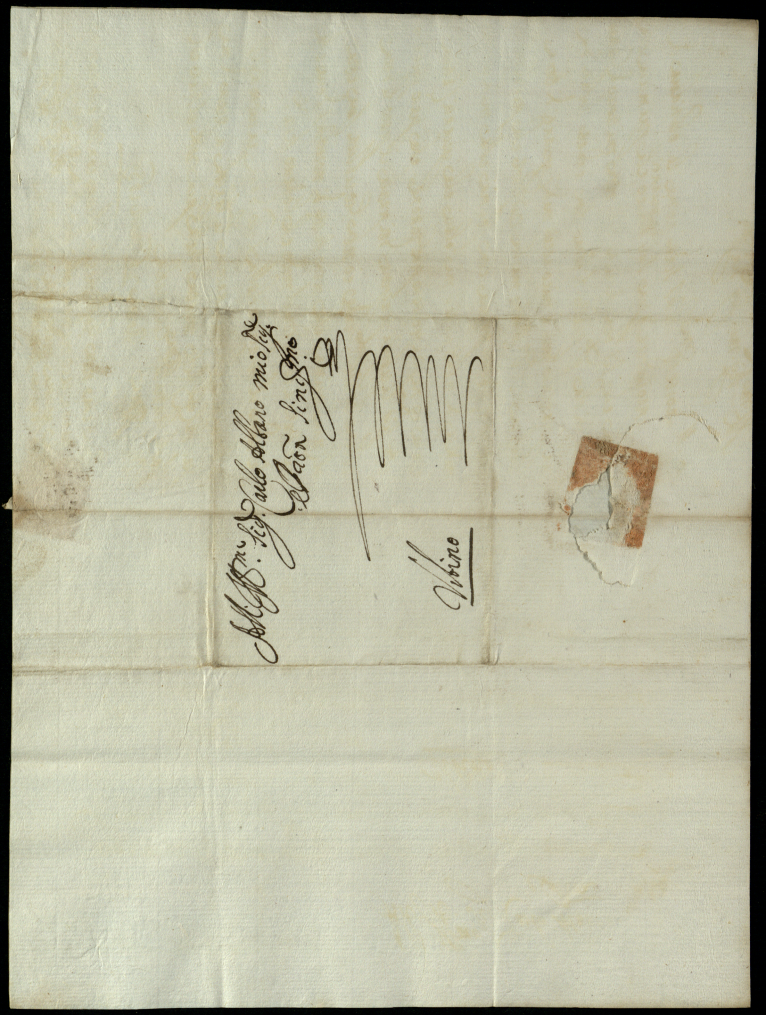 All Ill.mo Sig. Carlo Albano mio Sig.re
e Pađn Sing.mo
Urbino